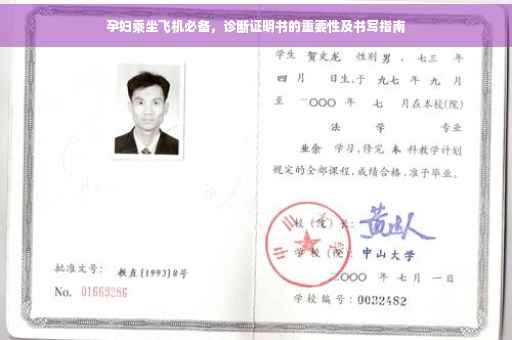 孕妇乘坐飞机必备，诊断证明书的重要性及书写指南
学生 贺文龙 性别 男，七三 年
四 月 日生，于 九七 年 九 月
至 二〇〇〇 年 七 月在本校(院)
法 学 专业
业余 学习，修完 本 科教学计划
规定的全部课程，成绩合格，准予毕业。
校（院）长：
学 校（院）： 中山大学
二〇〇〇 年 七 月 一 日
学校编号：0032482
批准文号： 教直[1993]8号
No. 01669286